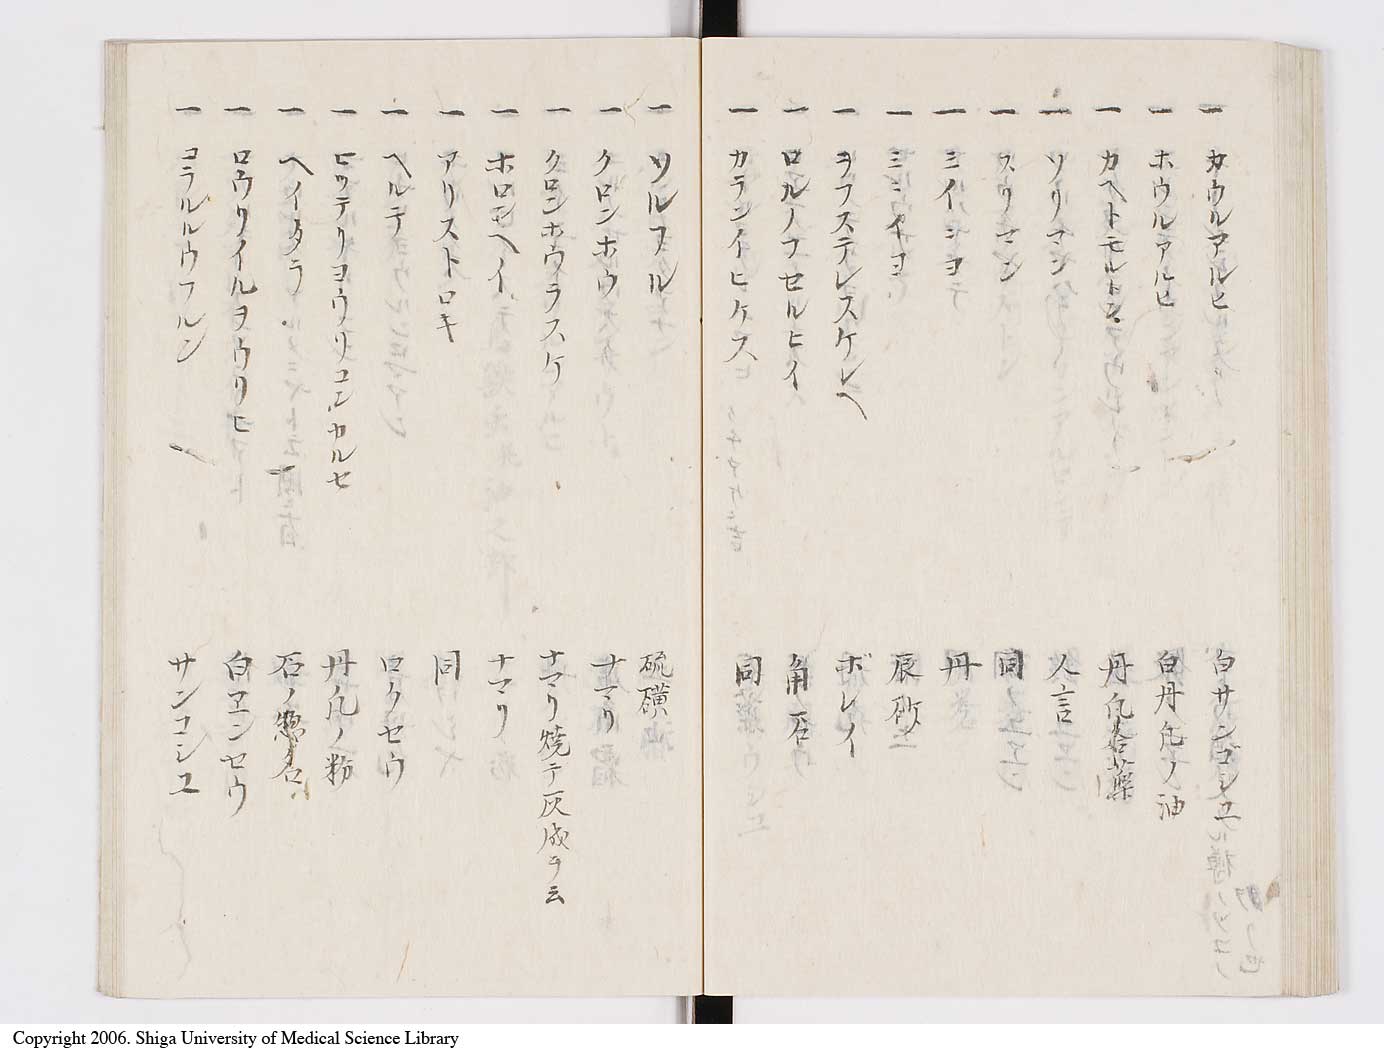 一 カウルアルヒ 白サンゴシユ
一 ホウルアルヒ 白丹凡ノ油
一 カヘトモルトン 丹凡合薬
一 ソリマン 人言
一 スリマン 同
一 ミイシヨ 丹
一 ミミイヨ 辰砂
一 ヲフステレスケレヘ ボレイ
一 ロルノフセルヒイ 角石
一 カランイヒケス 同
一 ソルフル 硫磺
一 クロンホウ ナマリ
一 クロンホウラスケ ナマリ焼テ灰成ヲ云
一 ホロンヘイ ナマリ
一 アリストロキ 同
一 ヘルデ ロクセウ
一 ヒッテリヨウリコンカルセ 丹凡ノ粉
一 ヘイタラ 石ノ惣名
一 ロウリイルヲウリヒ 白ヱンセウ
一 コラルルウフルン サンコシユ
Copyright 2006. Shiga University of Medical Science Library